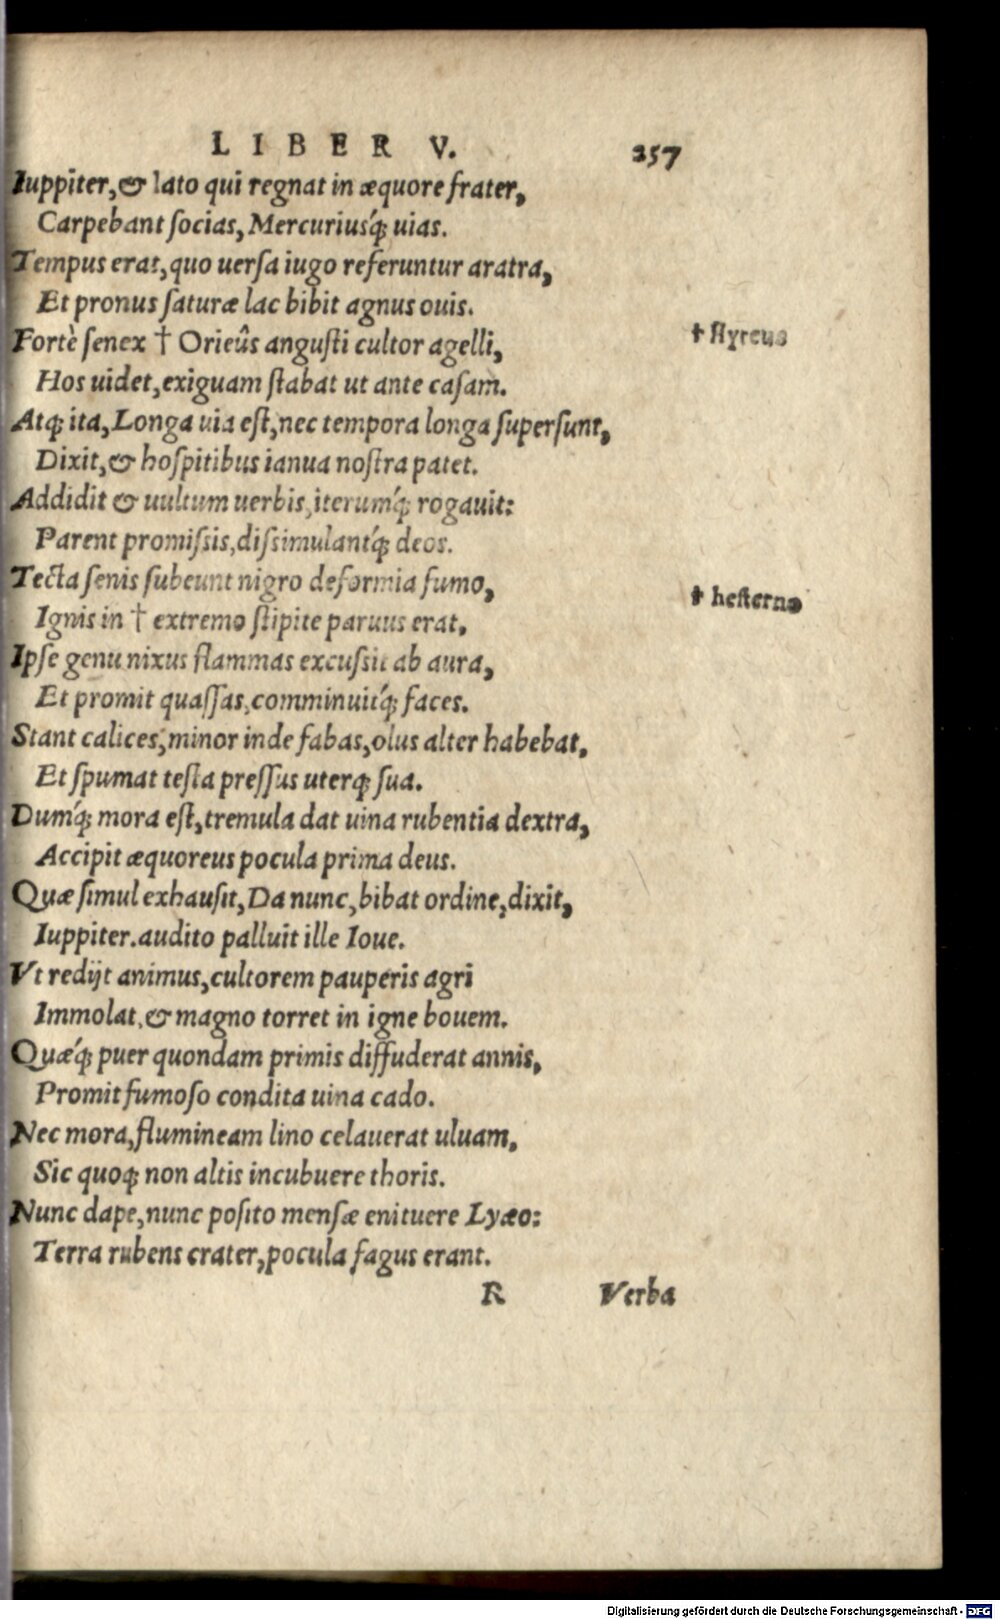 LIBER V. 257
Iuppiter, & lato qui regnat in æquore frater,
Carpebant ſocias, Mercuriusq́; uias.
Tempus erat, quo uerſa iugo referuntur aratra,
Et pronus ſaturæ lac bibit agnus ouis.
Fortè ſenex † Orieûs anguſti cultor agelli,
† ſtyreus
Hos uidet, exiguam ſtabat ut ante caſam.
Atq; ita, Longa uia eſt, nec tempora longa ſuperſunt,
Dixit, & hoſpitibus ianua noſtra patet.
Addidit & uultum uerbis, iterumq́; rogauit:
Parent promiſsis, diſsimulantq́; deos.
Tecta ſenis ſubeunt nigro deformia fumo,
† heſterno
Ignis in † extremo ſtipite paruus erat.
Ipſe genu nixus flammas excuſsit ab aura,
Et promit quaſſas, comminuitq́; faces.
Stant calices, minor inde fabas, olus alter habebat,
Et ſpumat teſta preſſus uterq; ſua.
Dumq́; mora eſt, tremula dat uina rubentia dextra,
Accipit æquoreus pocula prima deus.
Quæ ſimul exhauſit, Da nunc, bibat ordine, dixit,
Iuppiter. audito palluit ille Ioue.
Vt redijt animus, cultorem pauperis agri
Immolat, & magno torret in igne bouem.
Quæq́; puer quondam primis diffuderat annis,
Promit fumoſo condita uina cado.
Nec mora, flumineam lino celauerat uluam,
Sic quoq; non altis incubuere thoris.
Nunc dape, nunc poſito menſæ enituere Lyæo:
Terra rubens crater, pocula fagus erant.
R Verba
Digitalisierung gefördert durch die Deutsche Forschungsgemeinschaft - DFG